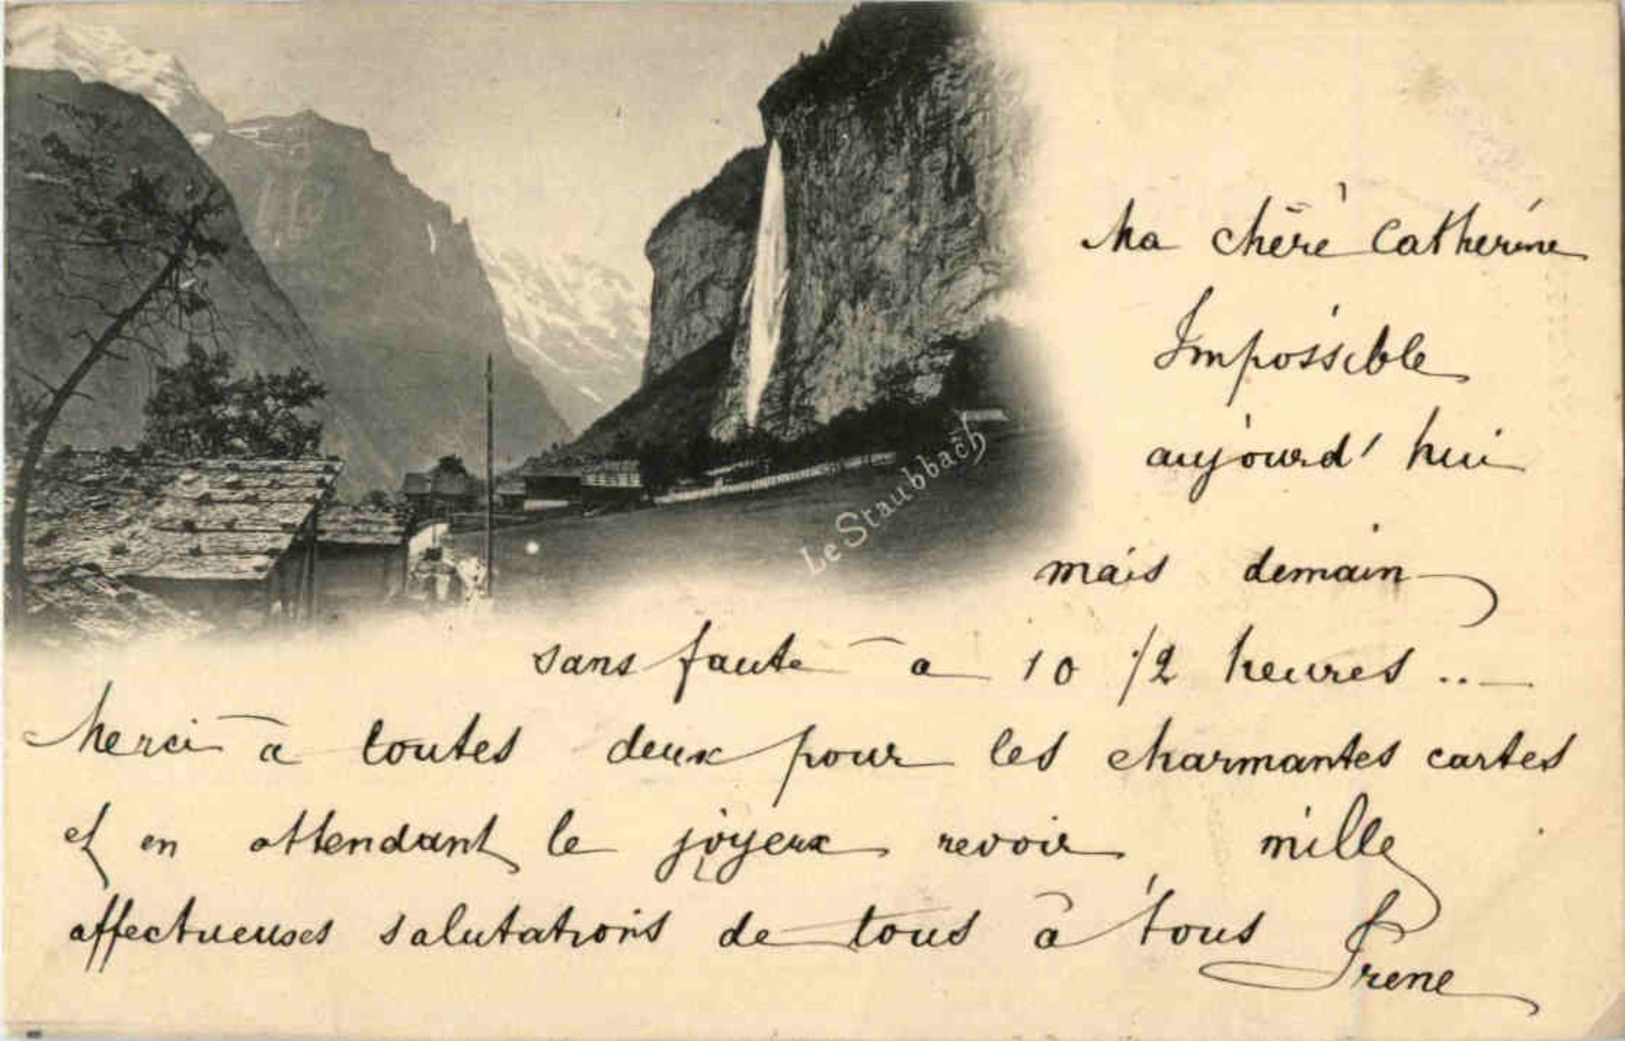 Le Staubbach
Ma chère Catherine
Impossible
aujourd'hui
mais demain
sans faute à 10 1/2 heures ..
Merci à toutes deux pour les charmantes cartes
et en attendant le joyeux revoir mille
affectueuses salutations de tous à tous
Irene